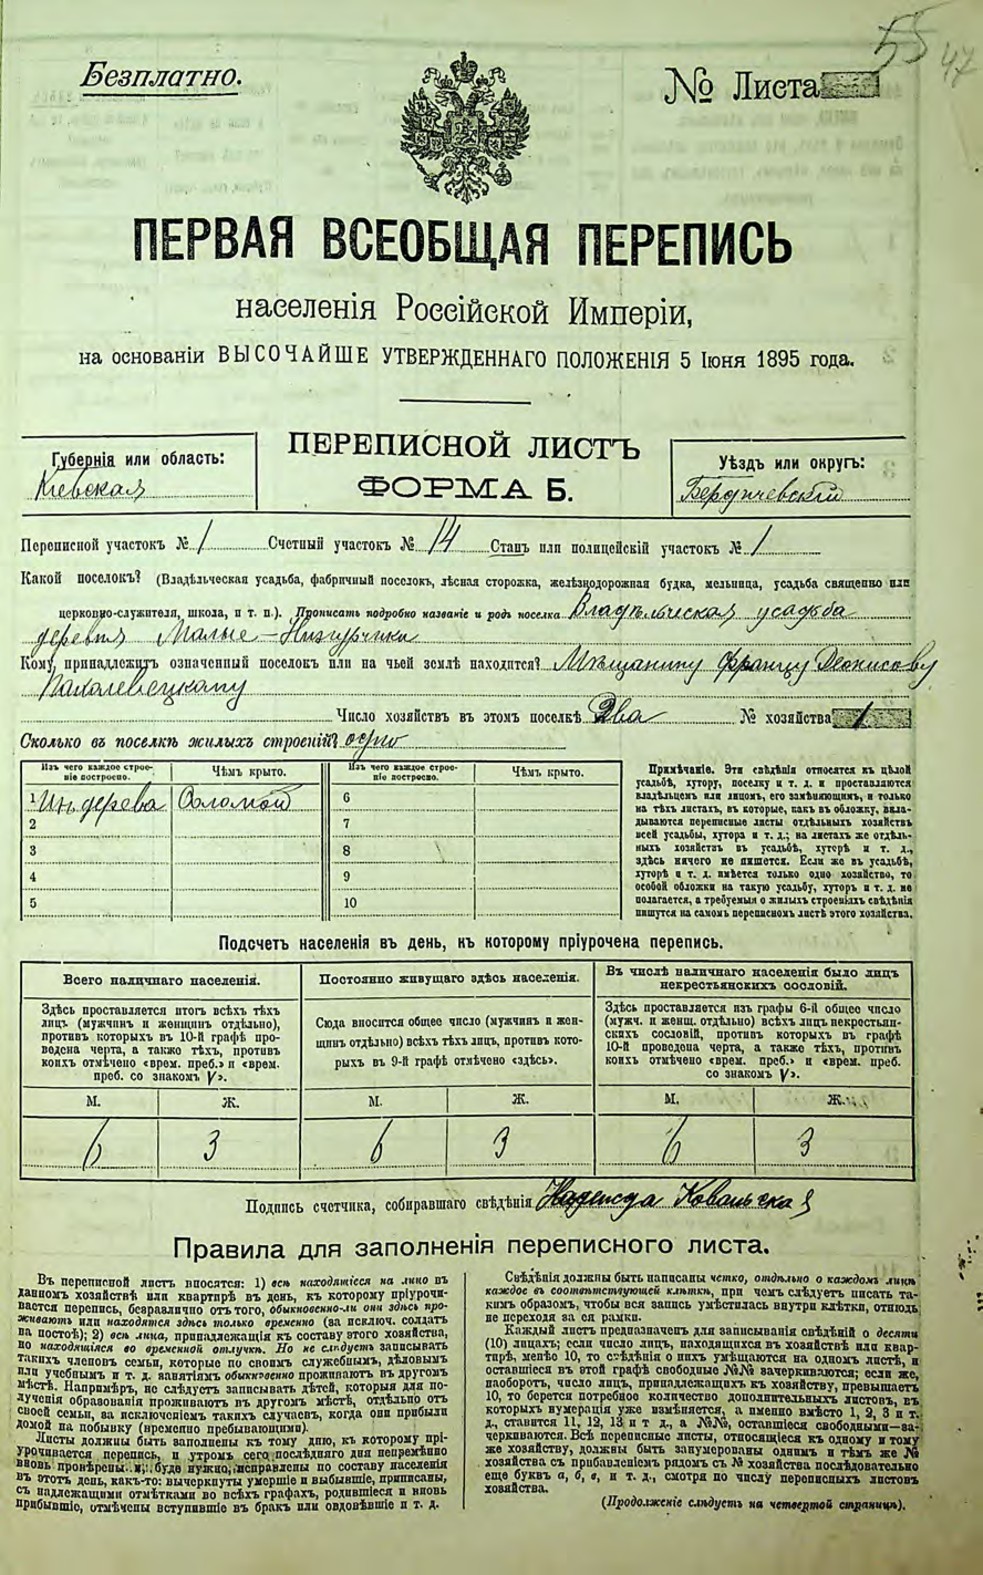 55
47
Безплатно.
№ Листа
ПЕРВАЯ ВСЕОБЩАЯ ПЕРЕПИСЬ
населенія Россійской Имперіи,
на основаніи ВЫСОЧАЙШЕ УТВЕРЖДЕННАГО ПОЛОЖЕНІЯ 5 Іюня 1895 года.
ПЕРЕПИСНОЙ ЛИСТЪ
ФОРМА Б.
Губернія или область:
Кіевская
Уѣздъ или округъ:
Бердичевскій
Переписной участокъ № 1 Счетный участокъ № 14 Станъ или полицейскій участокъ № 1
Какой поселокъ? (Владѣльческая усадьба, фабричный поселокъ, лѣсная сторожка, желѣзнодорожная будка, мельница, усадьба священно или
церковно-служителя, школа, и т. п.). Прописать подробно названіе и родъ поселка Владѣльческая усадьба
деревня Малые-Низгурчики
Кому принадлежитъ означенный поселокъ или на чьей землѣ находится? Мѣщанину Францу Діонисову
Пахалевецкому
Число хозяйствъ въ этомъ поселкѣ Два № хозяйства 1
Сколько въ поселкѣ жилыхъ строеній? одно
Изъ чего каждое строе-
ніе построено.
Чѣмъ крыто.
Изъ чего каждое строе-
ніе построено.
Чѣмъ крыто.
1 Изъ дерева Соломой 6
2 7
3 8
4 9
5 10
Примѣчаніе. Эти свѣдѣнія относятся къ цѣлой
усадьбѣ, хутору, поселку и т. д. и проставляются
владѣльцемъ или лицомъ, его замѣняющимъ, и только
на тѣхъ листахъ, въ которые, какъ въ обложку, вкла-
дываются переписные листы отдѣльныхъ хозяйствъ
всей усадьбы, хутора и т. д.; на листахъ же отдѣль-
ныхъ хозяйствъ въ усадьбѣ, хуторѣ и т. д.,
здѣсь ничего не пишется. Если же въ усадьбѣ,
хуторѣ и т. д. имѣется только одно хозяйство, то
особой обложки на такую усадьбу, хуторъ и т. д. не
полагается, а требуемыя о жилыхъ строеніяхъ свѣдѣнія
пишутся на самомъ переписномъ листѣ этого хозяйства.
Подсчетъ населенія въ день, къ которому пріурочена перепись.
Всего наличнаго населенія.
Здѣсь проставляется итогъ всѣхъ тѣхъ
лицъ (мужчинъ и женщинъ отдѣльно),
противъ которыхъ въ 10-й графѣ про-
ведена черта, а также тѣхъ, противъ
коихъ отмѣчено «врем. преб.» и «врем.
преб. со знакомъ V».
Постоянно живущаго здѣсь населенія.
Сюда вносится общее число (мужчинъ и жен-
щинъ отдѣльно) всѣхъ тѣхъ лицъ, противъ кото-
рыхъ въ 9-й графѣ отмѣчено «здѣсь».
Въ числѣ наличнаго населенія было лицъ
некрестьянскихъ сословій.
Здѣсь проставляется изъ графы 6-й общее число
(мужч. и женщ. отдѣльно) всѣхъ лицъ некрестьян-
скихъ сословій, противъ которыхъ въ графѣ
10-й проведена черта, а также тѣхъ, противъ
коихъ отмѣчено «врем. преб.» и «врем. преб.
со знакомъ V».
М. Ж. М. Ж. М. Ж.
6 3 6 3 6 3
Подпись счетчика, собиравшаго свѣдѣнія Надежда Ковальская
Правила для заполненія переписного листа.
Въ переписной листъ вносятся: 1) всѣ находящіеся на лицо въ
данномъ хозяйствѣ или квартирѣ въ день, къ которому пріурочи-
вается перепись, безразлично отъ того, обыкновенно-ли они здѣсь про-
живаютъ или находятся здѣсь только временно (за исключ. солдатъ
на постоѣ); 2) всѣ лица, принадлежащія къ составу этого хозяйства,
но находящіяся во временной отлучкѣ. Но не слѣдуетъ записывать
такихъ членовъ семьи, которые по своимъ служебнымъ, дѣловымъ
или учебнымъ и т. д. занятіямъ обыкновенно проживаютъ въ другомъ
мѣстѣ. Напримѣръ, не слѣдуетъ записывать дѣтей, которыя для по-
лученія образованія проживаютъ въ другомъ мѣстѣ, отдѣльно отъ
своей семьи, за исключеніемъ такихъ случаевъ, когда они прибыли
домой на побывку (временно пребывающими).
Листы должны быть заполнены къ тому дню, къ которому прі-
урочивается перепись, и утромъ сего послѣдняго дня непремѣнно
вновь провѣрены и, буде нужно, исправлены по составу населенія
въ этотъ день, какъ-то: вычеркнуты умершіе и выбывшіе, приписаны,
съ надлежащими отмѣтками во всѣхъ графахъ, родившіеся и вновь
прибывшіе, отмѣчены вступившіе въ бракъ или овдовѣвшіе и т. д.
Свѣдѣнія должны быть написаны четко, отдѣльно о каждомъ лицѣ
каждое въ соотвѣтствующей клѣткѣ, при чемъ слѣдуетъ писать та-
кимъ образомъ, чтобы вся запись умѣстилась внутри клѣтки, отнюдь
не переходя за ея рамки.
Каждый листъ предназначенъ для записыванія свѣдѣній о десяти
(10) лицахъ; если число лицъ, находящихся въ хозяйствѣ или квар-
тирѣ, менѣе 10, то свѣдѣнія о нихъ умѣщаются на одномъ листѣ, и
оставшіеся въ этой графѣ свободные №№ зачеркиваются; если же,
наоборотъ, число лицъ, принадлежащихъ къ хозяйству, превышаетъ
10, то берется потребное количество дополнительныхъ листовъ, въ
которыхъ нумерація уже измѣняется, а именно вмѣсто 1, 2, 3 и т.
д., ставится 11, 12, 13 и т д., а №№, оставшіеся свободными—за-
черкиваются. Всѣ переписные листы, относящіеся къ одному и тому
же хозяйству, должны быть занумерованы однимъ и тѣмъ же №
хозяйства съ прибавленіемъ рядомъ съ № хозяйства послѣдовательно
еще буквъ а, б, в, и т. д., смотря по числу переписныхъ листовъ
хозяйства.
(Продолженіе слѣдуетъ на четвертой страницѣ).